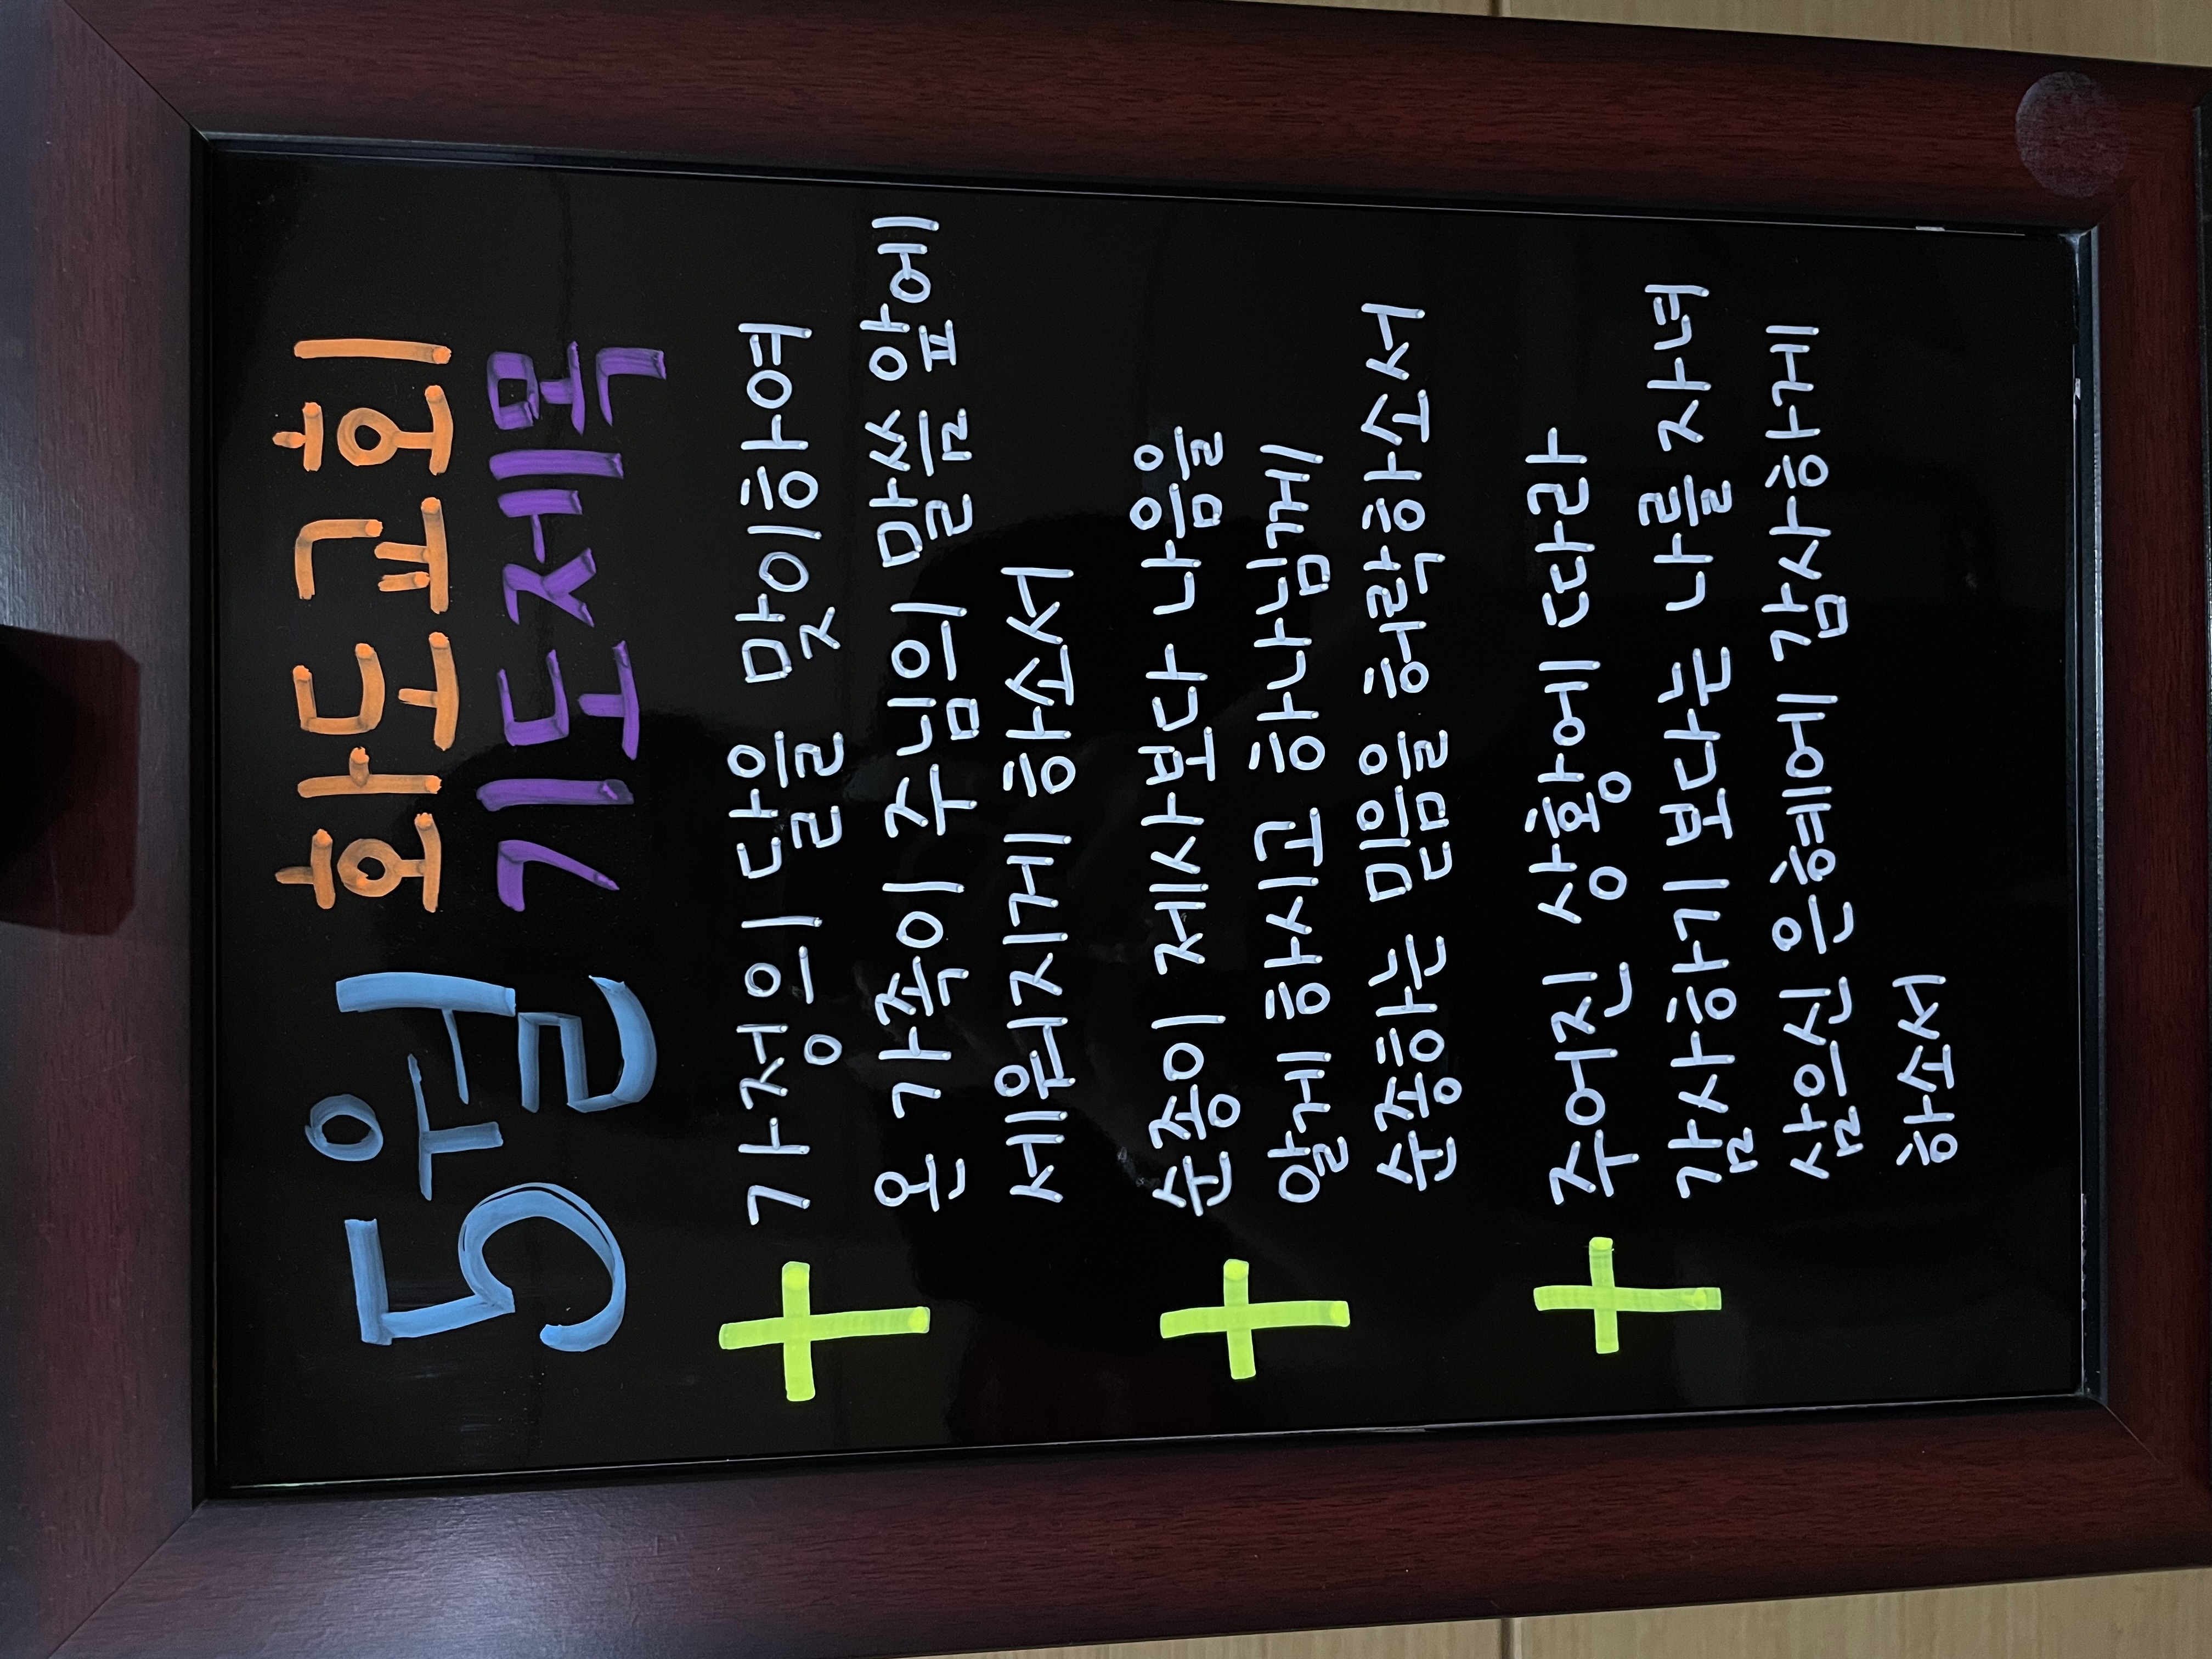 5월 화도교회
기도제목
가정의 달을 맞이하여
온 가족이 주님의 말씀 앞에
세워지게 하소서
순종이 제사보다 나음을
알게 하시고 하나님께
순종하는 믿음을 허락하소서
주어진 상황에 따라
감사하기 보다는 나를 자녀
삼으신 은혜에 감사하게
하소서